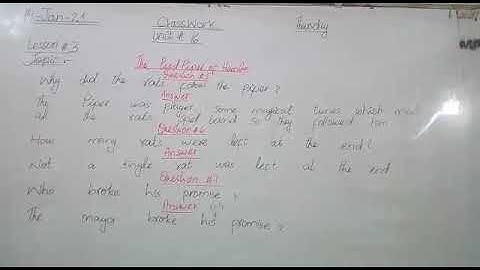 14-Jan-21 Classwork Thursday
Unit # 6
Lesson # 3
Topic: The Pied Piper of
Question #5
Why did the rats follow the piper?
Answer
The Piper was played some magical tunes which
all the rats spell bound so they followed him
Question #6
How many rats were left at the end?
Answer
Not a single rat was left at the end
Question #7
Who broke his promise?
Answer
The mayor broke his promise